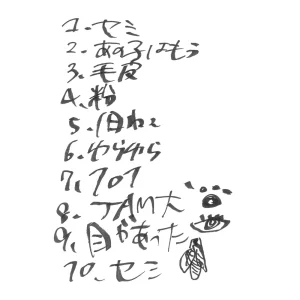 1、セミ
2、あの子はもう
3、毛皮
4、粉
5、
6、ゆらゆら
7、101
8、JAM大
9、目があった
10、セミ